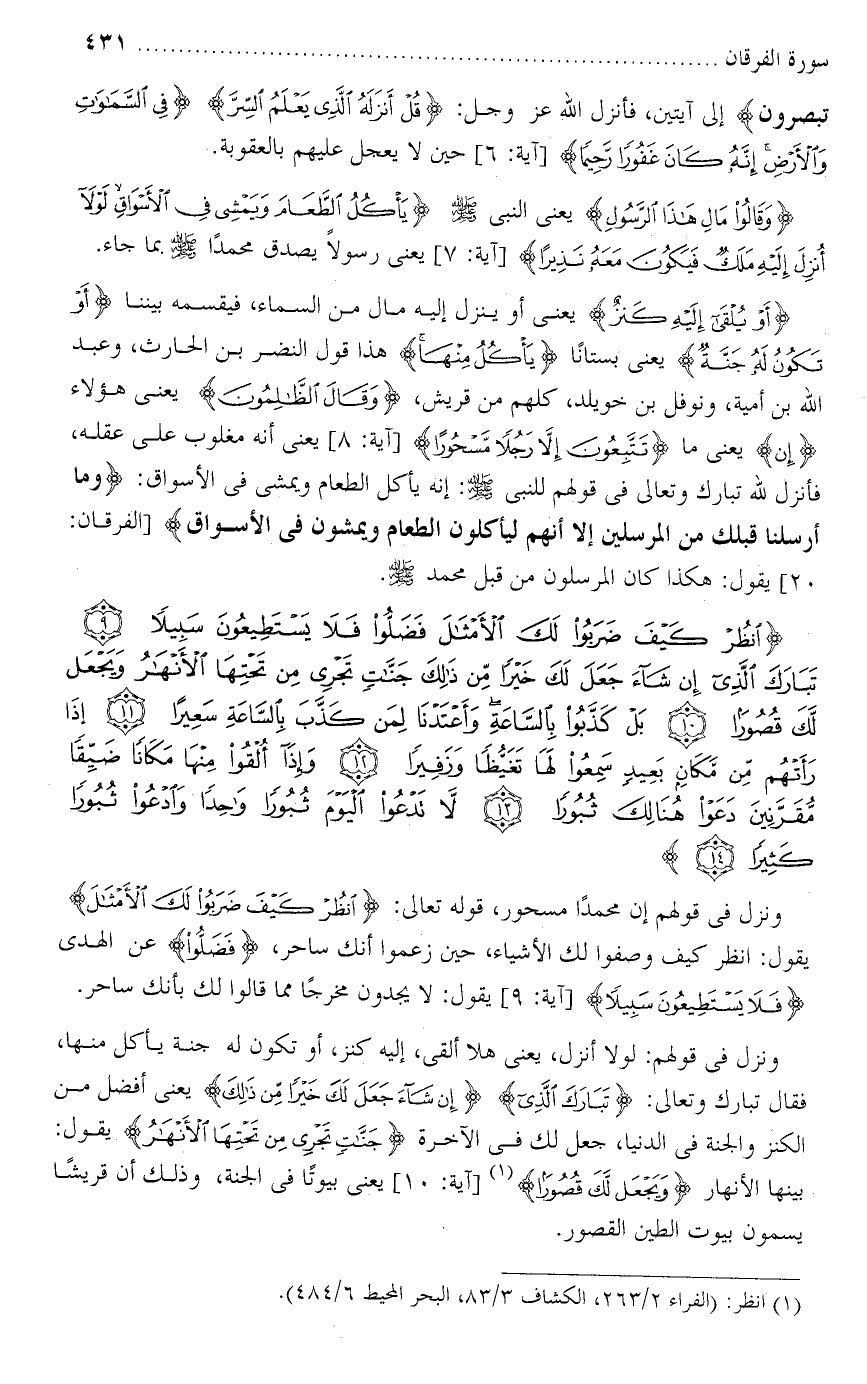 سورة الفرقان ........................................................ ٤٣١
تبصرون﴾ إلى آيتين، فأنزل الله عز وجل: ﴿قُلْ أَنزَلَهُ ٱلَّذِى يَعْلَمُ ٱلسِّرَّ﴾ ﴿فِى ٱلسَّمَٰوَٰتِ
وَٱلْأَرْضِ ۚ إِنَّهُۥ كَانَ غَفُورًا رَّحِيمًا﴾ [آية: ٦] حين لا يعجل عليهم بالعقوبة.
﴿وَقَالُوا۟ مَالِ هَٰذَا ٱلرَّسُولِ﴾ يعنى النبى ﷺ ﴿يَأْكُلُ ٱلطَّعَامَ وَيَمْشِى فِى ٱلْأَسْوَاقِ ۙ لَوْلَآ
أُنزِلَ إِلَيْهِ مَلَكٌ فَيَكُونَ مَعَهُۥ نَذِيرًا﴾ [آية: ٧] يعنى رسولاً يصدق محمدًا ﷺ بما جاء.
﴿أَوْ يُلْقَىٰٓ إِلَيْهِ كَنزٌ﴾ يعنى أو ينزل إليه مال من السماء، فيقسمه بيننا ﴿أَوْ
تَكُونُ لَهُۥ جَنَّةٌ﴾ يعنى بستانًا ﴿يَأْكُلُ مِنْهَا ۚ﴾ هذا قول النضر بن الحارث، وعبد
الله بن أمية، ونوفل بن خويلد، كلهم من قريش، ﴿وَقَالَ ٱلظَّٰلِمُونَ﴾ يعنى هؤلاء
﴿إِن﴾ يعنى ما ﴿تَتَّبِعُونَ إِلَّا رَجُلًا مَّسْحُورًا﴾ [آية: ٨] يعنى أنه مغلوب على عقله،
فأنزل لله تبارك وتعالى فى قولهم للنبى ﷺ: إنه يأكل الطعام ويمشى فى الأسواق: ﴿وما
أرسلنا قبلك من المرسلين إلا أنهم ليأكلون الطعام ويمشون فى الأسواق﴾ [الفرقان:
٢٠] يقول: هكذا كان المرسلون من قبل محمد ﷺ.
﴿ٱنظُرْ كَيْفَ ضَرَبُوا۟ لَكَ ٱلْأَمْثَٰلَ فَضَلُّوا۟ فَلَا يَسْتَطِيعُونَ سَبِيلًا ٩
تَبَارَكَ ٱلَّذِىٓ إِن شَآءَ جَعَلَ لَكَ خَيْرًا مِّن ذَٰلِكَ جَنَّٰتٍ تَجْرِى مِن تَحْتِهَا ٱلْأَنْهَٰرُ وَيَجْعَل
لَّكَ قُصُورًۢا ١٠ بَلْ كَذَّبُوا۟ بِٱلسَّاعَةِ ۖ وَأَعْتَدْنَا لِمَن كَذَّبَ بِٱلسَّاعَةِ سَعِيرًا ١١ إِذَا
رَأَتْهُم مِّن مَّكَانٍۭ بَعِيدٍ سَمِعُوا۟ لَهَا تَغَيُّظًا وَزَفِيرًا ١٢ وَإِذَآ أُلْقُوا۟ مِنْهَا مَكَانًا ضَيِّقًا
مُّقَرَّنِينَ دَعَوْا۟ هُنَالِكَ ثُبُورًا ١٣ لَّا تَدْعُوا۟ ٱلْيَوْمَ ثُبُورًا وَٰحِدًا وَٱدْعُوا۟ ثُبُورًا
كَثِيرًا ١٤ ﴾
ونزل فى قولهم إن محمدًا مسحور، قوله تعالى: ﴿ٱنظُرْ كَيْفَ ضَرَبُوا۟ لَكَ ٱلْأَمْثَٰلَ﴾
يقول: انظر كيف وصفوا لك الأشياء، حين زعموا أنك ساحر، ﴿فَضَلُّوا۟﴾ عن الهدى
﴿فَلَا يَسْتَطِيعُونَ سَبِيلًا﴾ [آية: ٩] يقول: لا يجدون مخرجًا مما قالوا لك بأنك ساحر.
ونزل فى قولهم: لولا أنزل، يعنى هلا ألقى، إليه كنز، أو تكون له جنة يأكل منها،
فقال تبارك وتعالى: ﴿تَبَارَكَ ٱلَّذِىٓ﴾ ﴿إِن شَآءَ جَعَلَ لَكَ خَيْرًا مِّن ذَٰلِكَ﴾ يعنى أفضل من
الكنز والجنة فى الدنيا، جعل لك فى الآخرة ﴿جَنَّٰتٍ تَجْرِى مِن تَحْتِهَا ٱلْأَنْهَٰرُ﴾ يقول:
بينها الأنهار ﴿وَيَجْعَل لَّكَ قُصُورًۢا﴾(١) [آية: ١٠] يعنى بيوتًا فى الجنة، وذلك أن قريشًا
يسمون بيوت الطين القصور.
(١) انظر: (الفراء ٢٦٣/٢، الكشاف ٨٣/٣، البحر المحيط ٤٨٤/٦).